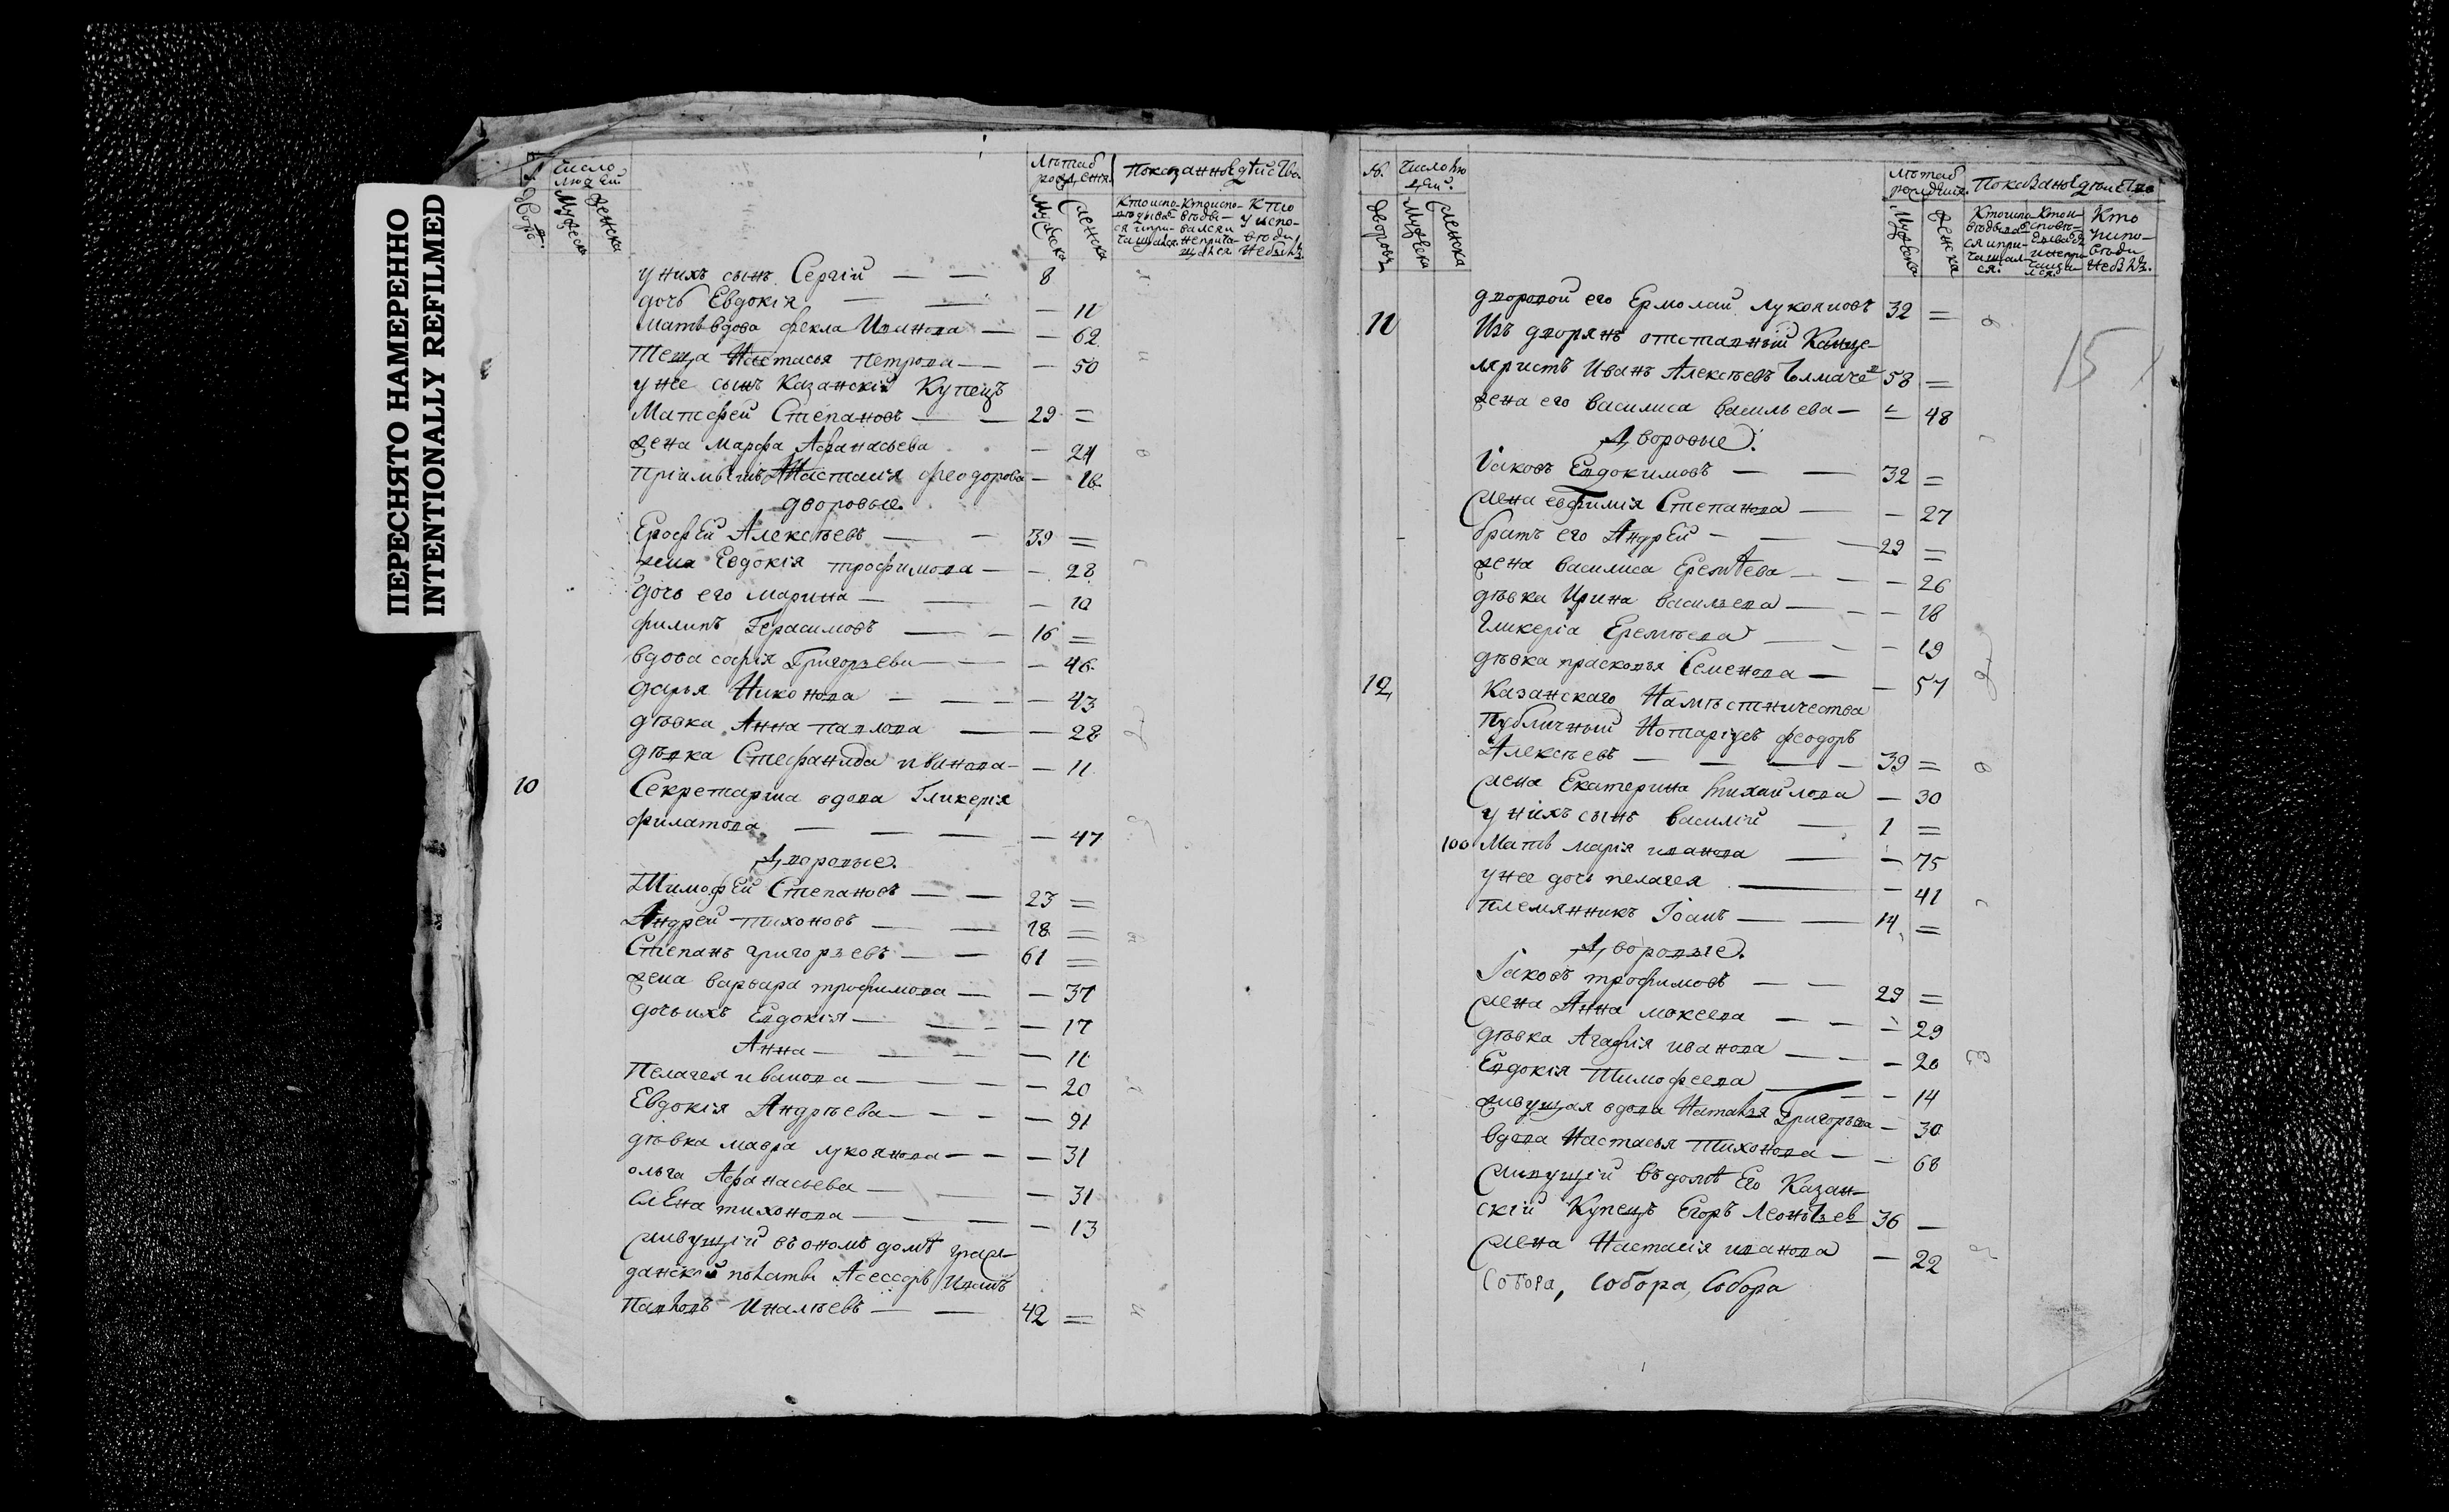 ПЕРЕСНЯТО НАМЕРЕННО
INTENTIONALLY REFILMED
число людей
дворовъ. Мужеска женска
лѣта ѿ рожденія.
Мужеска женска
Показанные дѣйства.
Кто исповѣдывался и причащался. Кто исповѣдывался и не причащался Кто у исповѣди не былъ.
у нихъ сынъ Сергій — — 8
дочь Евдокія — — — 11
мать вдова фекла Иванова — — 62
теща Настасья петрова — — 50
у нее сынъ Казанскій Купецъ
Матфей Степановъ — — 29 =
жена марфа Афанасьева — 24
Пріимышъ Анастасія феодорова — 16
дворовые.
Ерофѣй Алексѣевъ — — 39 =
жена Евдокія трофимова — — 28
дочь его марина — — — 10
филипъ Герасимовъ — — 16 =
вдова софія Григорьева — — — 46
дарья Никонова — — — — 43
дѣвка Анна павлова — — 28
дѣвка Стефанида иванова — — 11
10 Секретарша вдова Гликерія
филатова — — — — 47
Дворовые.
Тимофѣй Степановъ — — 23 =
Андрей тихоновъ — — 18 =
Степанъ григорьевъ — — 61 =
жена варвара трофимова — — 37
дочь ихъ Евдокія — — — — 17
Анна — — — — 11
Пелагея иванова — — — — 20
Евдокія Андрѣева — — — — 21
дѣвка мавра лукоянова — — — 31
ольга Афанасьева — — — 31
елЕна тихонова — — — — 13
живущій въ ономъ домѣ граж-
данской палаты Асессоръ Иванъ
Павловъ Иналѣевъ — — 42 =
№. число людей.
дворовъ Мужеска женска
лѣта ѿ рожденія.
Мужеска женска
Показаные дѣйства
Кто исповѣдывался и причащался. Кто исповѣдывался и не причащался Кто у исповѣди не былъ.
15
дворовой его Ермолай лукояновъ 32 =
11 Изъ дворянъ отставный Канце-
ляристъ Иванъ Алексѣевъ 58 =
жена его василиса васильева — = 48
Дворовые.
Іаковъ Евдокимовъ — — 32 =
жена евфимія Степанова — — 27
братъ его Андрѣй — — — 29 =
жена василиса Еремѣева — — — 26
дѣвка Ирина васильева — — — 18
Гликеріа Еремѣева — — — 19
дѣвка прасковья Семенова — — 57
12 Казанскаго Намѣстничества
Публичный Нотаріусъ феодоръ
Алексѣевъ — — — — 39 =
жена Екатерина михайлова — 30
у нихъ сынъ василій — 1 =
100 Мать марія иванова — — 75
у нее дочь пелагея — — 41
племянникъ Іоанъ — — 14 =
Дворовые.
Іаковъ трофимовъ — — 29 =
жена Анна мокеева — — — 29
дѣвка Агафія иванова — — — 20
Евдокія Тимофеева — — 14
живущая вдова Наталья Григорьева — 30
вдова Настасья Тихонова — — 68
живущій въ домѣ Его Казан-
скій Купецъ Егоръ Леонтьев 36 —
жена Настасія иванова — 22
Собора, Собора, Собора